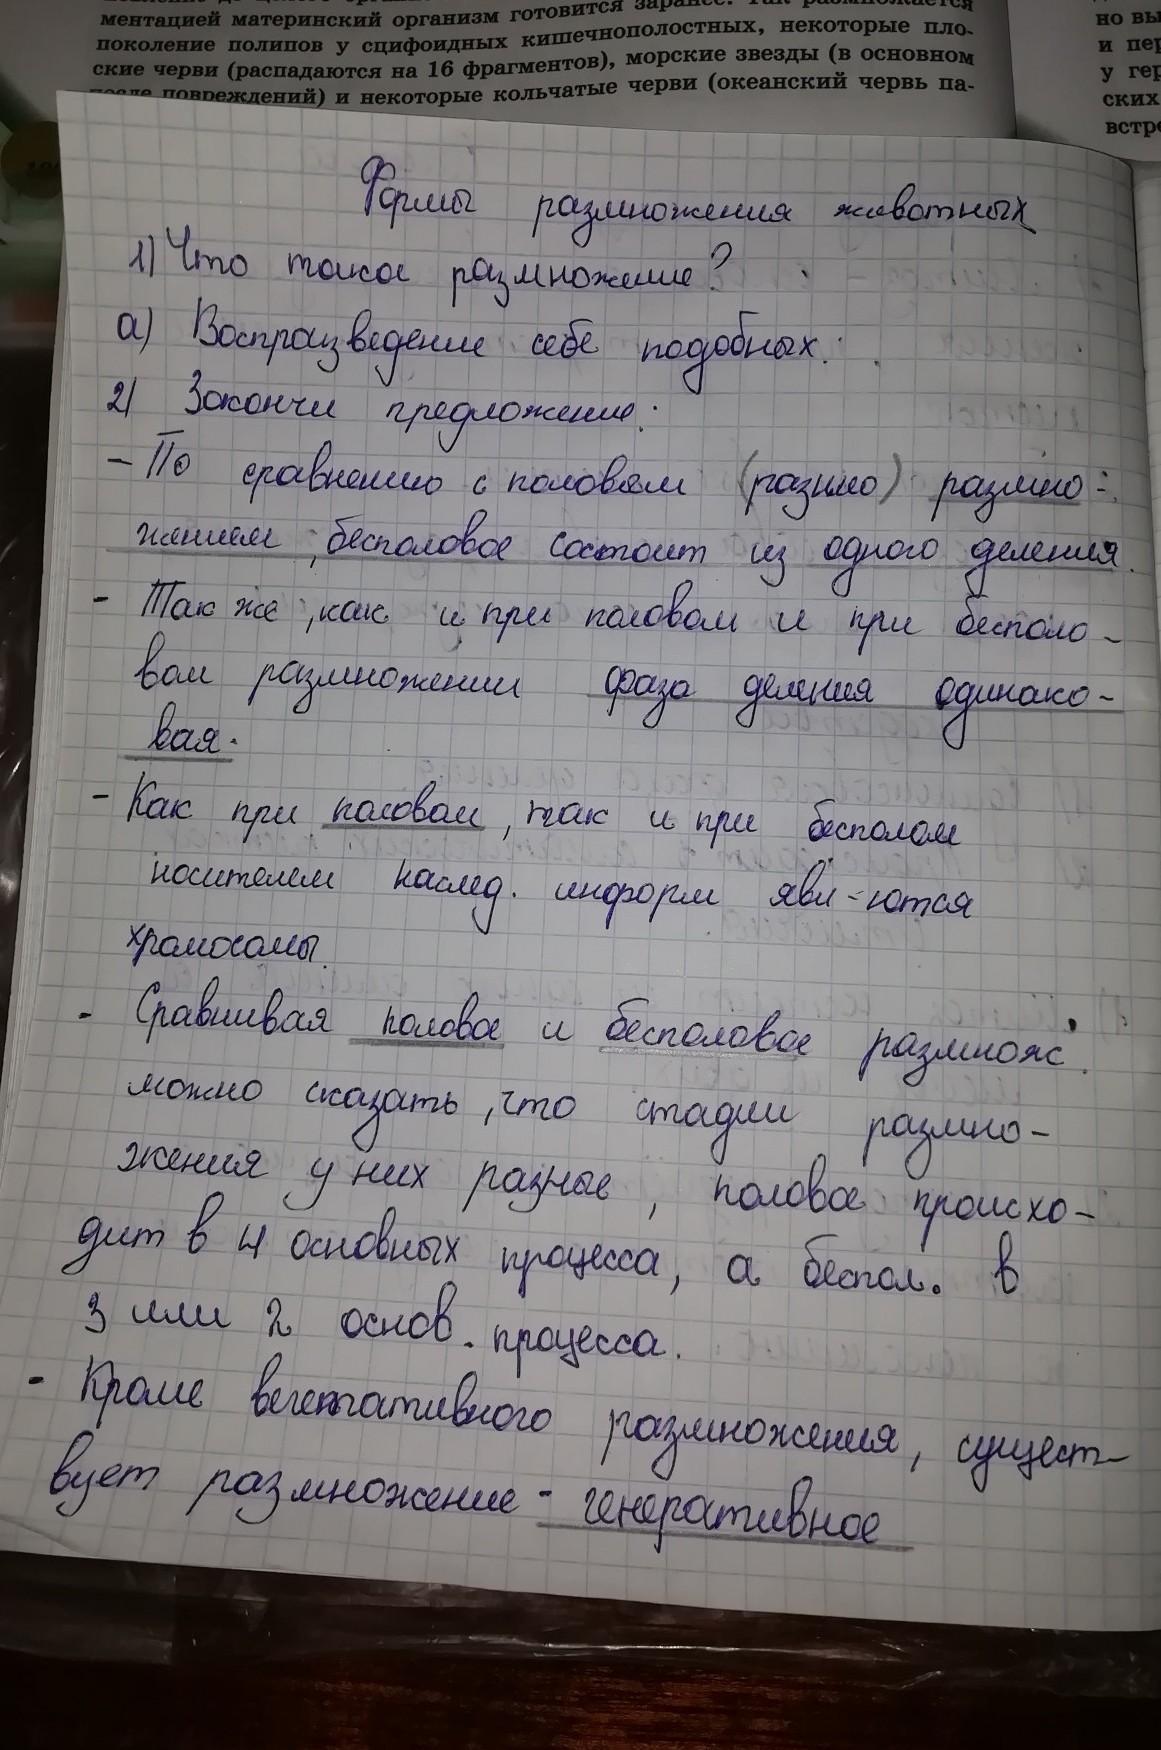 ментацией материнский организм готовится заранее. Так размножается
поколение полипов у сцифоидных кишечнополостных, некоторые пло-
ские черви (распадаются на 16 фрагментов), морские звезды (в основном
после повреждений) и некоторые кольчатые черви (океанский червь па-
но вы
и пер
у гер
ских
встре
Формы размножения животных
1) Что такое размножение?
а) Воспроизведение себе подобных.
2) Закончи предложение:
- По сравнению с половым (размно) размно-
жением, бесполовое состоит из одного деления.
- Так же, как и при половом и при бесполо-
вом размножении фаза деления одинако-
вая.
- Как при половом, так и при бесполом
носителем наслед. информ явл-ются
хромосомы.
- Сравнивая половое и бесполовое размнож.
можно сказать, что стадии размно-
жения у них разные, половое происхо-
дит в 4 основных процесса, а беспол. в
3 или 2 основ. процесса.
- Кроме вегетативного размножения, сущест-
вует размножение - генеративное